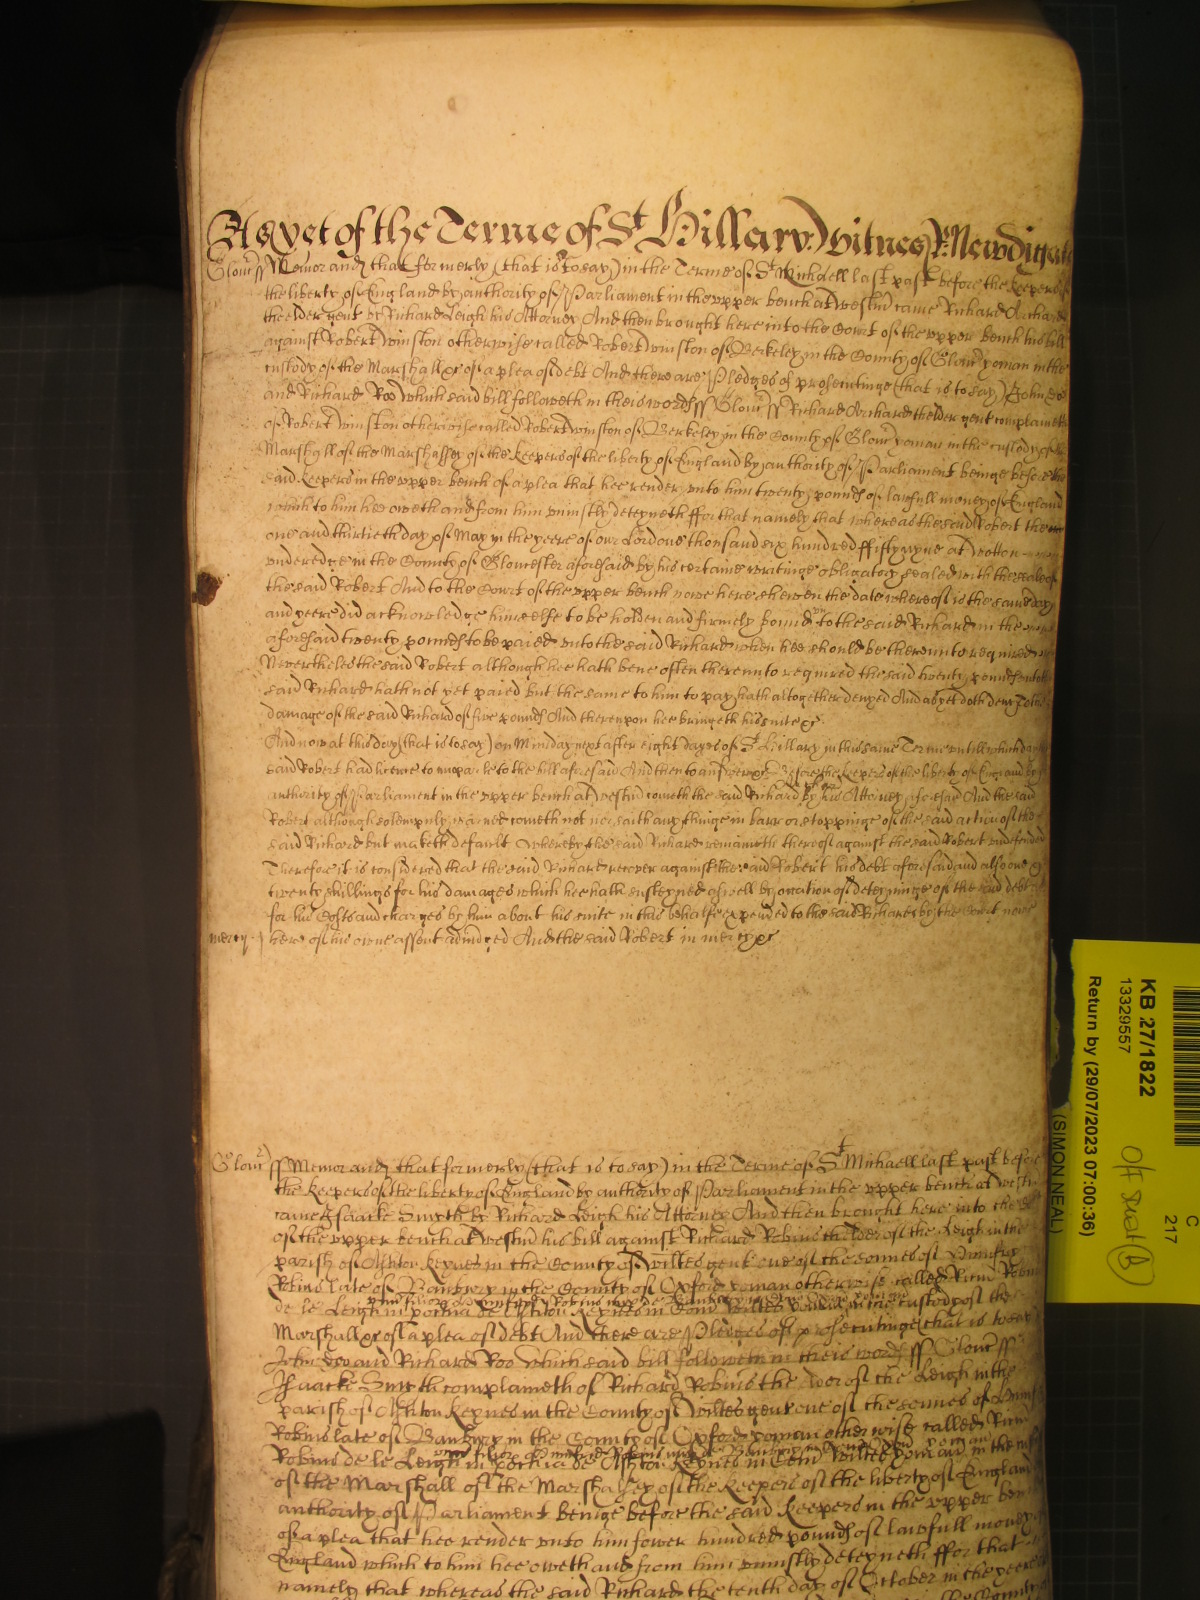 As yet of the Terme of St Hillary Witnes R: Newdigate
Glouc ss Memorand that formerly (that is to say) in the Terme of St Michaell last past before the Keepers of
the liberty of England by authority of Parliament in the upper bench at Westm came Richard Archard
the elder gent by Richard Leigh his Attorney And then brought here into the Court of the upper bench his bill
against Robert Winston otherwise called Robert Winston of Berkeley in the County of Glouc yoman in the
custody of the Marshall &c of a plea of debt And there are Pledges of prosecutinge (that is to say) John Doo
and Richard Roo Which said bill followeth in theis words ss Glouc ss Richard Archard thelder gent complaineth
of Robert Winston otherwise called Robert Winston of Berkeley in the County of Glouc yoman in the custody of the
Marshall of the Marshalsey of the Keepers of the liberty of England by authority of Parliament beinge before the
said Keepers in the upper bench of a plea that hee render unto him twenty pounds of lawfull money of England
which to him hee oweth and from him uniustly deteyneth ffor that namely that whereas the said Robert the
one and thirtieth day of May in the yeere of our Lord one thousand six hundred ffifty nyne at Wotton
underedge in the County of Gloucester aforesaid by his certaine writinge obligatory sealed with the seale of
the said Robert And to the Court of the upper bench nowe here shewen the date whereof is the same day
and yeere did acknowledge himselfe to be holden and firmely bound unto the said Richard in the
aforesaid twenty pounds to be paied unto the said Richard when hee should be thereunto required
Neverthelesse the said Robert although hee hath bene often thereunto required the said twenty pounds unto the
said Richard hath not yet paied but the same to him to pay hath altogether denyed And as yet doth deny To the
damage of the said Richard of five pounds And thereupon hee bringeth his suite &c
And now at this day (that is to say) on Munday next after eight dayes of St Hillary in this same Terme untill which day the
said Robert had licence to imparle to the bill aforesaid And then to answere &c Before the Keepers of the liberty of England by
authority of Parliament in the upper bench at Westm cometh the said Richard by his Attorney aforesaid And the said
Robert although solempnly warned cometh not nor saith any thinge in barr or stoppinge of the said action of the
said Richard but maketh default Whereby the said Richard remaineth thereof against the said Robert undefended
Therefore it is considered that the said Richard recover against the said Robert his debt aforesaid and also one &
twenty shillings for his damages which hee hath susteyned aswell by occation of deteyninge of the said debt as
for his Costs and charges by him about his suite in this behalfe expended to the said Richard by the Court nowe
mercy here of his owne assent adiudged And the said Robert in mercy &c
Glouc ss Memorand that formerly (that is to say) in the Terme of St Michaell last past before
the Keepers of the liberty of England by authority of Parliament in the upper bench at Westm
came Isaacke Smyth by Richard Leigh his Attorney And then brought here into the Court
of the upper bench at Westm his bill against Richard Robins the elder of the Leigh in the
parish of Ashton Keynes in the County of Wiltes gent one of the sonnes of
Robins late of Banbury in the County of Oxford yoman otherwise called Ricus Robins
de le Leigh in parochia de Ashton Keynes in Com Wiltes yoman in the custody of the
Marshall &c of a plea of debt And there are Pledges of prosecutinge (that is to say)
John Doo and Richard Roo Which said bill followeth in theis words ss Glouc ss
Isaacke Smyth complaineth of Richard Robins the elder of the Leigh in the
parish of Ashton Keynes in the County of Wiltes gent one of the sonnes of
Robins late of Banbury in the County of Oxford yoman otherwise called Ricus
Robins de le Leigh in parochia de Ashton Keynes in Com Wiltes yoman in the
of the Marshall of the Marshalsey of the Keepers of the liberty of England
authority of Parliament beinge before the said Keepers in the upper bench
of a plea that hee render unto him fower hundred pounds of lawfull money
England which to him hee oweth and from him uniustly deteyneth ffor that
namely that whereas the said Richard the tenth day of October in the yeere
KB 27/1822
13329557
Return by (29/07/2023 07:00:36)
(SIMON NEAL)
C
217